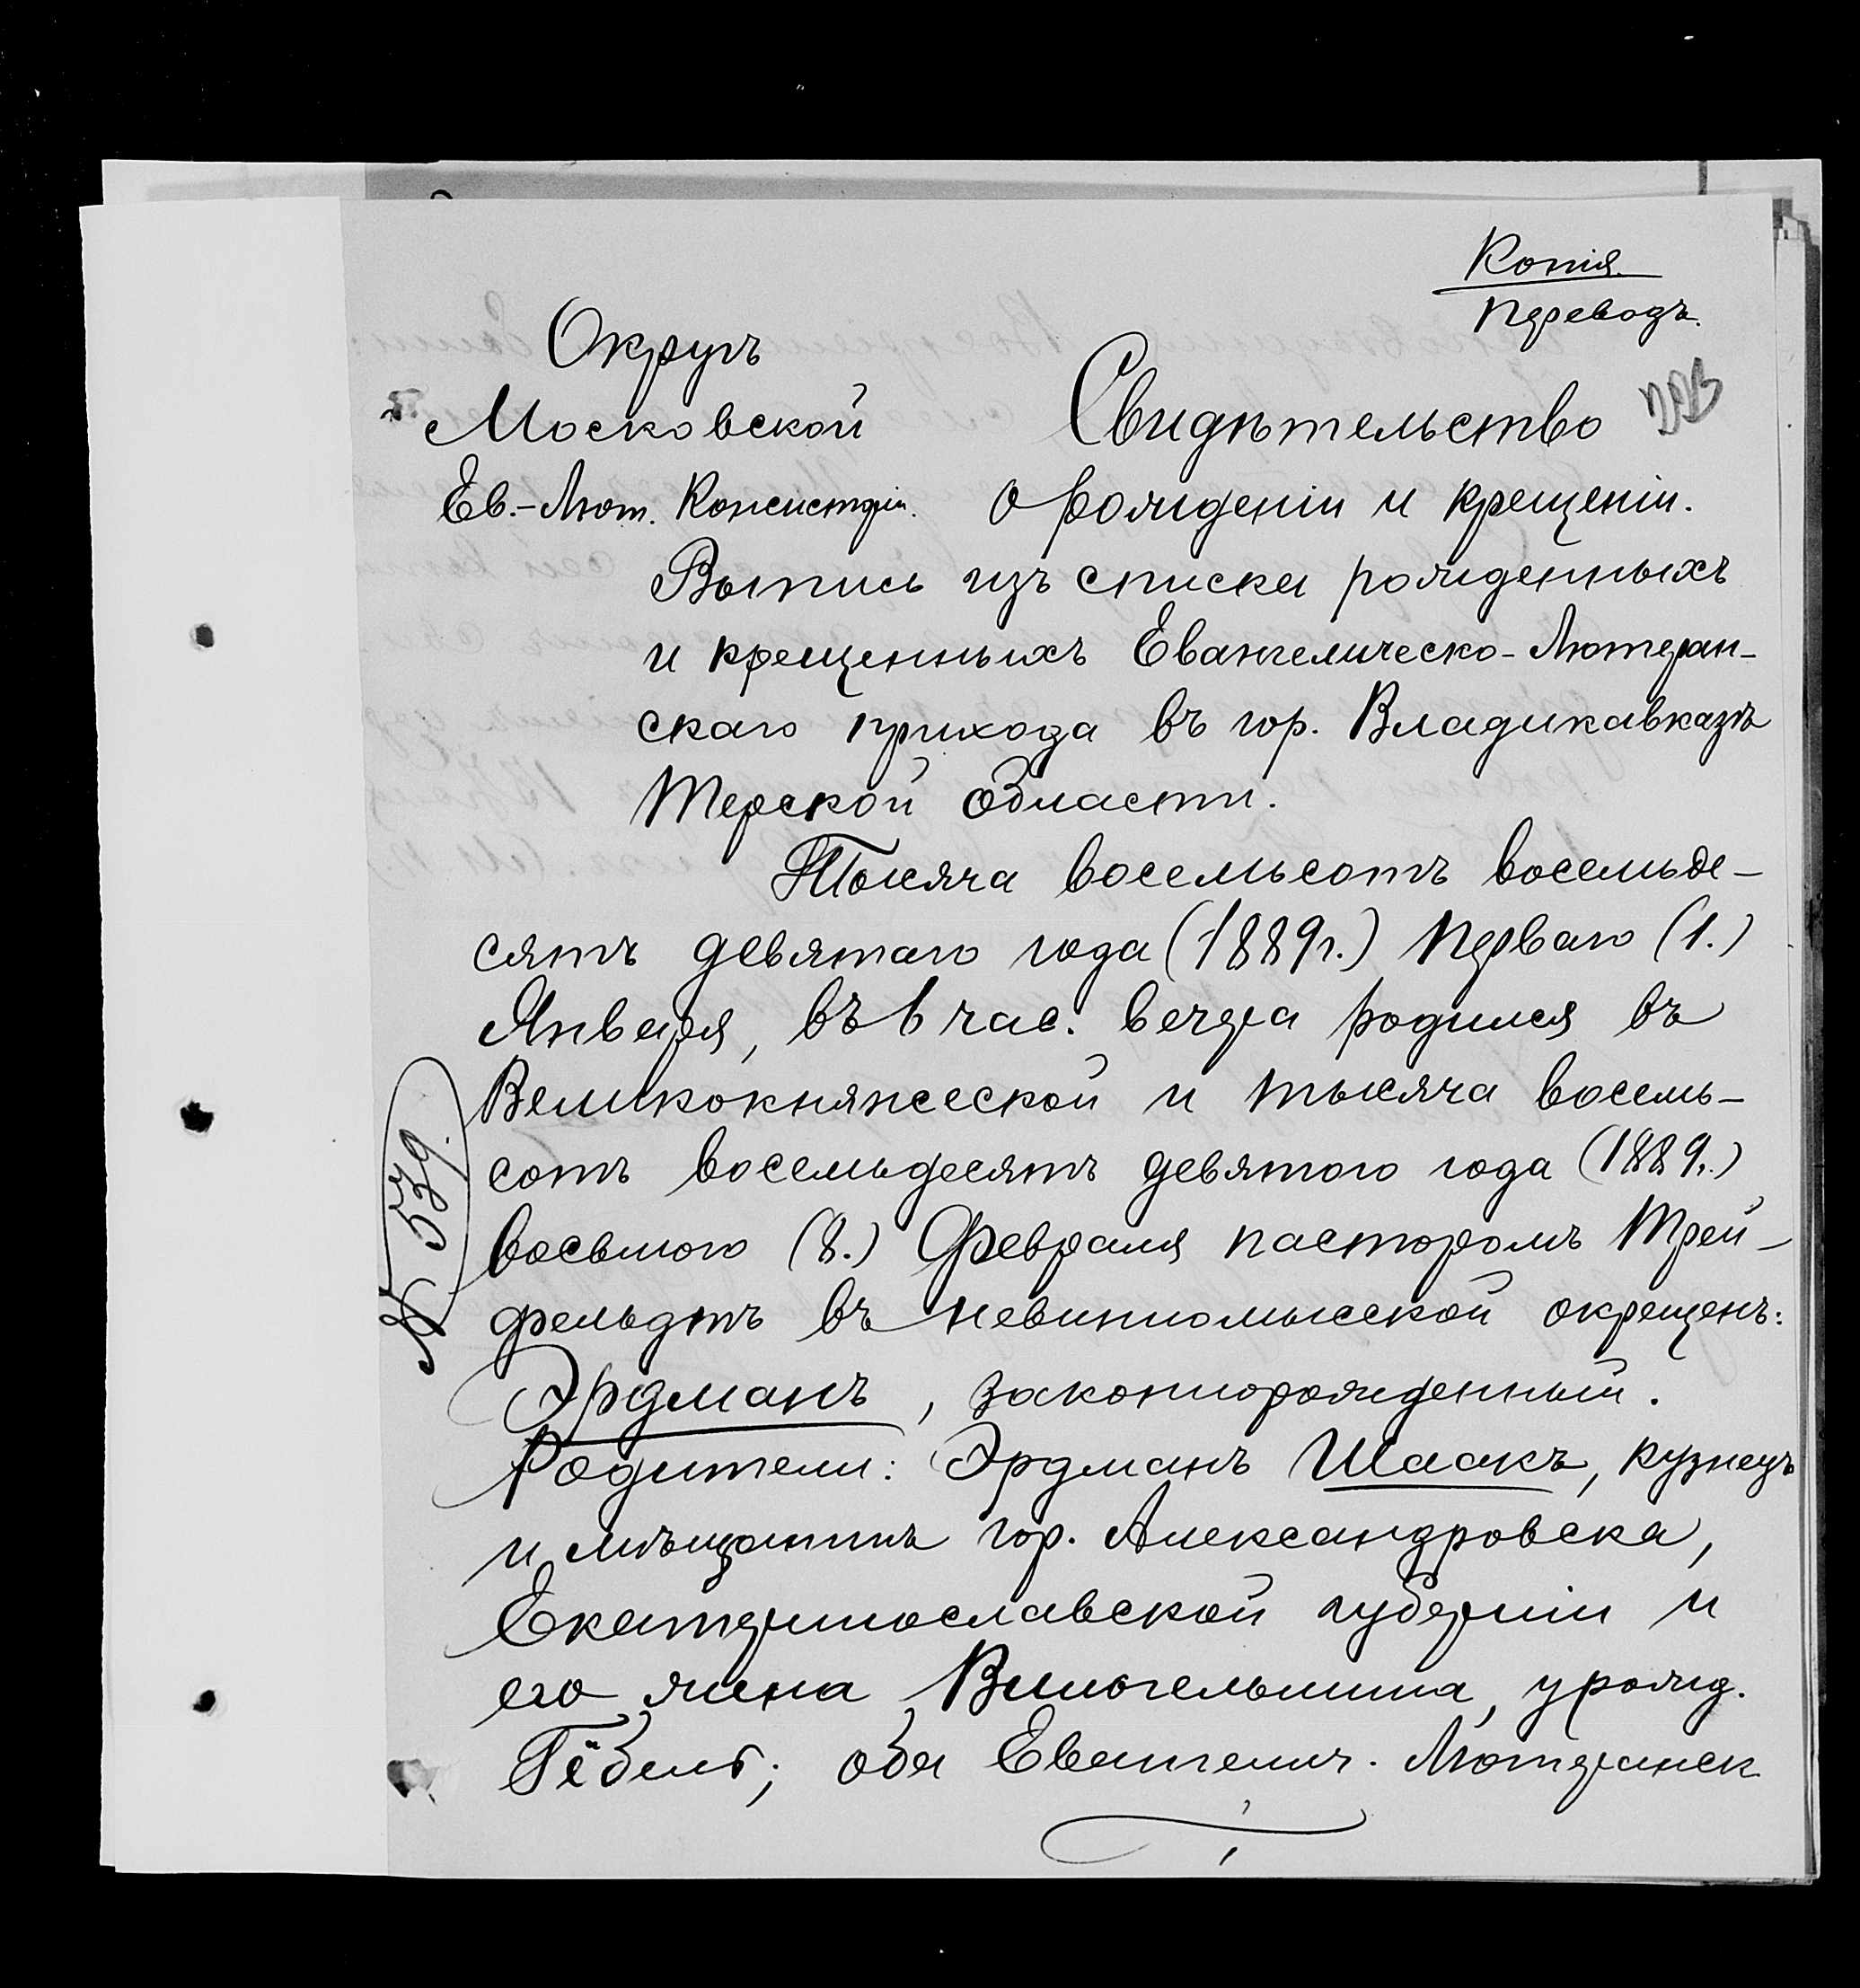 Копія.
Переводъ.
Округъ
Московской
Ев.-Лют. Консисторіи.
Свидѣтельство
о рожденіи и крещеніи.
Выпись изъ списка рожденныхъ
и крещенныхъ Евангелическо-Лютеран-
скаго прихода въ гор. Владикавказѣ
Терской области.
Тысяча восемьсотъ восемьде-
сятъ девятаго года (1889 г.) Перваго (1.)
Января, въ 6 час. вечера родился въ
Великокняжеской и тысяча восемь-
сотъ восемьдесятъ девятого года (1889 г.)
восьмого (8.) Февраля пасторомъ Трей-
фельдтъ въ Невинномысской окрещенъ:
Эрдманъ, законнорожденный.
Родители: Эрдманъ Шаакъ, кузнецъ
и мѣщанинъ гор. Александровска,
Екатеринославской губерніи и
его жена Вильгельмина, урожд.
Гёбель; оба Евангелич. Лютеранск
№ 539.